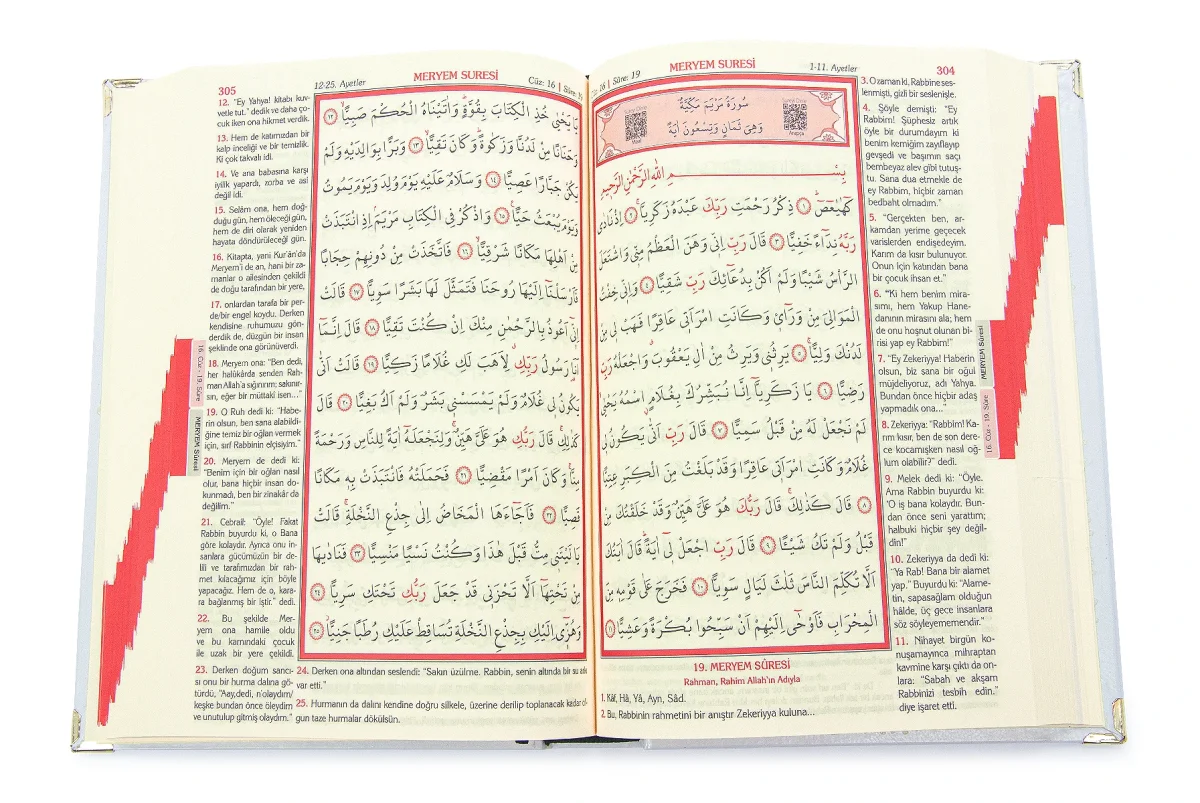 304
MERYEM SURESİ
1-11. Ayetler
16 | Sûre: 19
سُورَةُ مَرْيَمَ مَكِّيَّةٌ
وَهِيَ ثَمَانٍ وَتِسْعُونَ اٰيَةً
بِسْــــمِ اللّٰهِ الرَّحْمٰنِ الرَّحِيمِ
كٓهٰيٰعٓصٓ ﴿١﴾ ذِكْرُ رَحْمَتِ رَبِّكَ عَبْدَهُ زَكَرِيَّا ﴿٢﴾ اِذْ نَادٰى
رَبَّهُ نِدَٓاءً خَفِيًّا ﴿٣﴾ قَالَ رَبِّ اِنّٖي وَهَنَ الْعَظْمُ مِنّٖي وَاشْتَعَلَ
الرَّأْسُ شَيْبًا وَلَمْ اَكُنْ بِدُعَٓائِكَ رَبِّ شَقِيًّا ﴿٤﴾ وَاِنّٖي خِفْتُ
الْمَوَالِيَ مِنْ وَرَٓاءٖي وَكَانَتِ امْرَاَتٖي عَاقِرًا فَهَبْ لٖي مِنْ
لَدُنْكَ وَلِيًّا ﴿٥﴾ يَرِثُنٖي وَيَرِثُ مِنْ اٰلِ يَعْقُوبَ وَاجْعَلْهُ رَبِّ
رَضِيًّا ﴿٦﴾ يَا زَكَرِيَّٓا اِنَّا نُبَشِّرُكَ بِغُلَامٍ اسْمُهُ يَحْيٰى
لَمْ نَجْعَلْ لَهُ مِنْ قَبْلُ سَمِيًّا ﴿٧﴾ قَالَ رَبِّ اَنّٰى يَكُونُ لٖي
غُلَامٌ وَكَانَتِ امْرَاَتٖي عَاقِرًا وَقَدْ بَلَغْتُ مِنَ الْكِبَرِ عِتِيًّا
﴿٨﴾ قَالَ كَذٰلِكَ قَالَ رَبُّكَ هُوَ عَلَيَّ هَيِّنٌ وَقَدْ خَلَقْتُكَ مِنْ
قَبْلُ وَلَمْ تَكُ شَيْـًٔا ﴿٩﴾ قَالَ رَبِّ اجْعَلْ لٖٓي اٰيَةً قَالَ اٰيَتُكَ
اَلَّا تُكَلِّمَ النَّاسَ ثَلٰثَ لَيَالٍ سَوِيًّا ﴿١٠﴾ فَخَرَجَ عَلٰى قَوْمِهٖ مِنَ
الْمِحْرَابِ فَاَوْحٰٓى اِلَيْهِمْ اَنْ سَبِّحُوا بُكْرَةً وَعَشِيًّا ﴿١١﴾
19. MERYEM SÛRESİ
Rahman, Rahim Allah'ın Adıyla
1. Kâf, Hâ, Yâ, Ayn, Sâd.
2. Bu, Rabbinin rahmetini bir anıştır Zekeriyya kuluna...
3. O zaman ki, Rabbine ses-
lenmişti, gizli bir seslenişle.
4. Şöyle demişti: "Ey
Rabbim! Şüphesiz artık
öyle bir durumdayım ki
benim kemiğim zayıflayıp
gevşedi ve başımın saçı
bembeyaz alev gibi tutuş-
tu. Sana dua etmekle de
ey Rabbim, hiçbir zaman
bedbaht olmadım."
5. "Gerçekten ben, ar-
kamdan yerime geçecek
varislerden endişedeyim.
Karım da kısır bulunuyor.
Onun için katından bana
bir çocuk ihsan et."
6. "Ki hem benim mira-
sımı, hem Yakup Hane-
danının mirasını ala; hem
de onu hoşnut olunan bi-
risi yap ey Rabbim!"
7. "Ey Zekeriyya! Haberin
olsun, biz sana bir oğul
müjdeliyoruz, adı Yahya.
Bundan önce hiçbir adaş
yapmadık ona..."
8. Zekeriyya: "Rabbim! Ka-
rım kısır, ben de son dere-
ce kocamışken nasıl oğ-
lum olabilir?" dedi.
9. Melek dedi ki: "Öyle.
Ama Rabbin buyurdu ki:
'O iş bana kolaydır. Bun-
dan önce seni yarattım;
halbuki hiçbir şey değil-
din!"
10. Zekeriyya da dedi ki:
"Ya Rab! Bana bir alamet
yap." Buyurdu ki: "Alame-
tin, sapasağlam olduğun
hâlde, üç gece insanlara
söz söyleyememendir."
11. Nihayet birgün ko-
nuşamayınca mihraptan
kavmine karşı çıktı da on-
lara: "Sabah ve akşam
Rabbinizi tesbih edin."
diye işaret etti.
MERYEM Sûresi
16. Cüz - 19. Sûre
305
12-25. Ayetler
MERYEM SURESİ
Cüz: 16 | Sûre: 19
يَا يَحْيٰى خُذِ الْكِتَابَ بِقُوَّةٍ وَاٰتَيْنَاهُ الْحُكْمَ صَبِيًّا ﴿١٢﴾
وَحَنَانًا مِنْ لَدُنَّا وَزَكٰوةً وَكَانَ تَقِيًّا ﴿١٣﴾ وَبَرًّا بِوَالِدَيْهِ وَلَمْ
يَكُنْ جَبَّارًا عَصِيًّا ﴿١٤﴾ وَسَلَامٌ عَلَيْهِ يَوْمَ وُلِدَ وَيَوْمَ يَمُوتُ
وَيَوْمَ يُبْعَثُ حَيًّا ﴿١٥﴾ وَاذْكُرْ فِي الْكِتَابِ مَرْيَمَ اِذِ انْتَبَذَتْ
مِنْ اَهْلِهَا مَكَانًا شَرْقِيًّا ﴿١٦﴾ فَاتَّخَذَتْ مِنْ دُونِهِمْ حِجَابًا
فَاَرْسَلْنَٓا اِلَيْهَا رُوحَنَا فَتَمَثَّلَ لَهَا بَشَرًا سَوِيًّا ﴿١٧﴾ قَالَتْ
اِنّٖٓي اَعُوذُ بِالرَّحْمٰنِ مِنْكَ اِنْ كُنْتَ تَقِيًّا ﴿١٨﴾ قَالَ اِنَّمَٓا
اَنَا۬ رَسُولُ رَبِّكِ لِاَهَبَ لَكِ غُلَامًا زَكِيًّا ﴿١٩﴾ قَالَتْ اَنّٰى
يَكُونُ لٖي غُلَامٌ وَلَمْ يَمْسَسْنٖي بَشَرٌ وَلَمْ اَكُ بَغِيًّا ﴿٢٠﴾ قَالَ
كَذٰلِكِ قَالَ رَبُّكِ هُوَ عَلَيَّ هَيِّنٌ وَلِنَجْعَلَهُٓ اٰيَةً لِلنَّاسِ وَرَحْمَةً
مِنَّا وَكَانَ اَمْرًا مَقْضِيًّا ﴿٢١﴾ فَحَمَلَتْهُ فَانْتَبَذَتْ بِهٖ مَكَانًا
قَصِيًّا ﴿٢٢﴾ فَاَجَٓاءَهَا الْمَخَاضُ اِلٰى جِذْعِ النَّخْلَةِ قَالَتْ
يَا لَيْتَنٖي مِتُّ قَبْلَ هٰذَا وَكُنْتُ نَسْيًا مَنْسِيًّا ﴿٢٣﴾ فَنَادٰيهَا
مِنْ تَحْتِهَٓا اَلَّا تَحْزَنٖي قَدْ جَعَلَ رَبُّكِ تَحْتَكِ سَرِيًّا ﴿٢٤﴾
وَهُزّٖٓي اِلَيْكِ بِجِذْعِ النَّخْلَةِ تُسَاقِطْ عَلَيْكِ رُطَبًا جَنِيًّا ﴿٢٥﴾
12. "Ey Yahya! kitabı kuv-
vetle tut." dedik ve daha ço-
cuk iken ona hikmet verdik.
13. Hem de katımızdan bir
kalp inceliği ve bir temizlik.
Ki çok takvalı idi.
14. Ve ana babasına karşı
iyilik yapardı, zorba ve asi
değil idi.
15. Selâm ona, hem doğ-
duğu gün, hem öleceği gün,
hem de diri olarak yeniden
hayata döndürüleceği gün.
16. Kitapta, yani Kur'ân'da
Meryem'i de an, hani bir za-
manlar o ailesinden çekildi
de doğu tarafından bir yere,
17. onlardan tarafa bir per-
de/bir engel koydu. Derken
kendisine ruhumuzu gön-
derdik de, düzgün bir insan
şeklinde ona görünüverdi.
18. Meryem ona: "Ben dedi,
her halükârda senden Rah-
man Allah'a sığınırım; sakınır-
san, eğer bir müttaki isen..."
19. O Ruh dedi ki: "Habe-
rin olsun, ben sana alabildi-
ğine temiz bir oğlan vermek
için, sırf Rabbinin elçisiyim."
20. Meryem de dedi ki:
"Benim için bir oğlan nasıl
olur, bana hiçbir insan do-
kunmadı, ben bir zinakâr da
değilim."
21. Cebrail: "Öyle! Fakat
Rabbin buyurdu ki, o Bana
göre kolaydır. Ayrıca onu in-
sanlara gücümüzün bir de-
lili ve tarafımızdan bir rah-
met kılacağımız için böyle
yapacağız. Hem de o, kara-
ra bağlanmış bir iştir." dedi.
22. Bu şekilde Mer-
yem ona hamile oldu
ve bu karnındaki çocuk
ile uzak bir yere çekildi.
23. Derken doğum sancı-
sı onu bir hurma dalına gö-
türdü, "Aay,dedi, n'olaydım/
keşke bundan önce öleydim
ve unutulup gitmiş olaydım."
24. Derken ona altından seslendi: "Sakın üzülme. Rabbin, senin altında bir su arkı
var etti."
25. Hurmanın da dalını kendine doğru silkele, üzerine derilip toplanacak kadar ol-
gun taze hurmalar dökülsün.
16. Cüz - 19. Sûre
MERYEM Sûresi